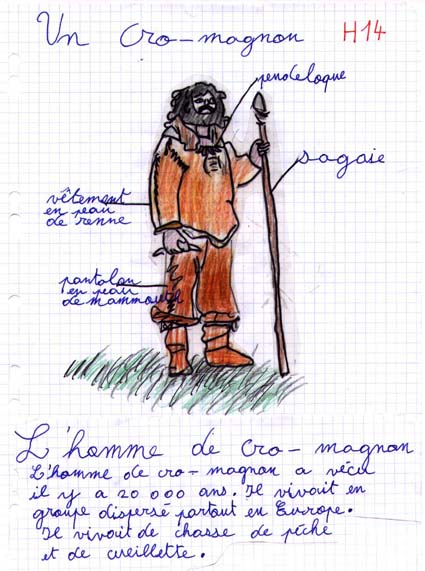 Un Cro-magnon
H14
pendeloque
sagaie
vêtement
en peau
de renne
pantalon
en peau
de mammouth
L'homme de cro-magnon
L'homme de cro-magnon a vécu
il y a 20 000 ans. Il vivait en
groupe dispersé partout en Europe.
Il vivait de chasse de pêche
et de cueillette.